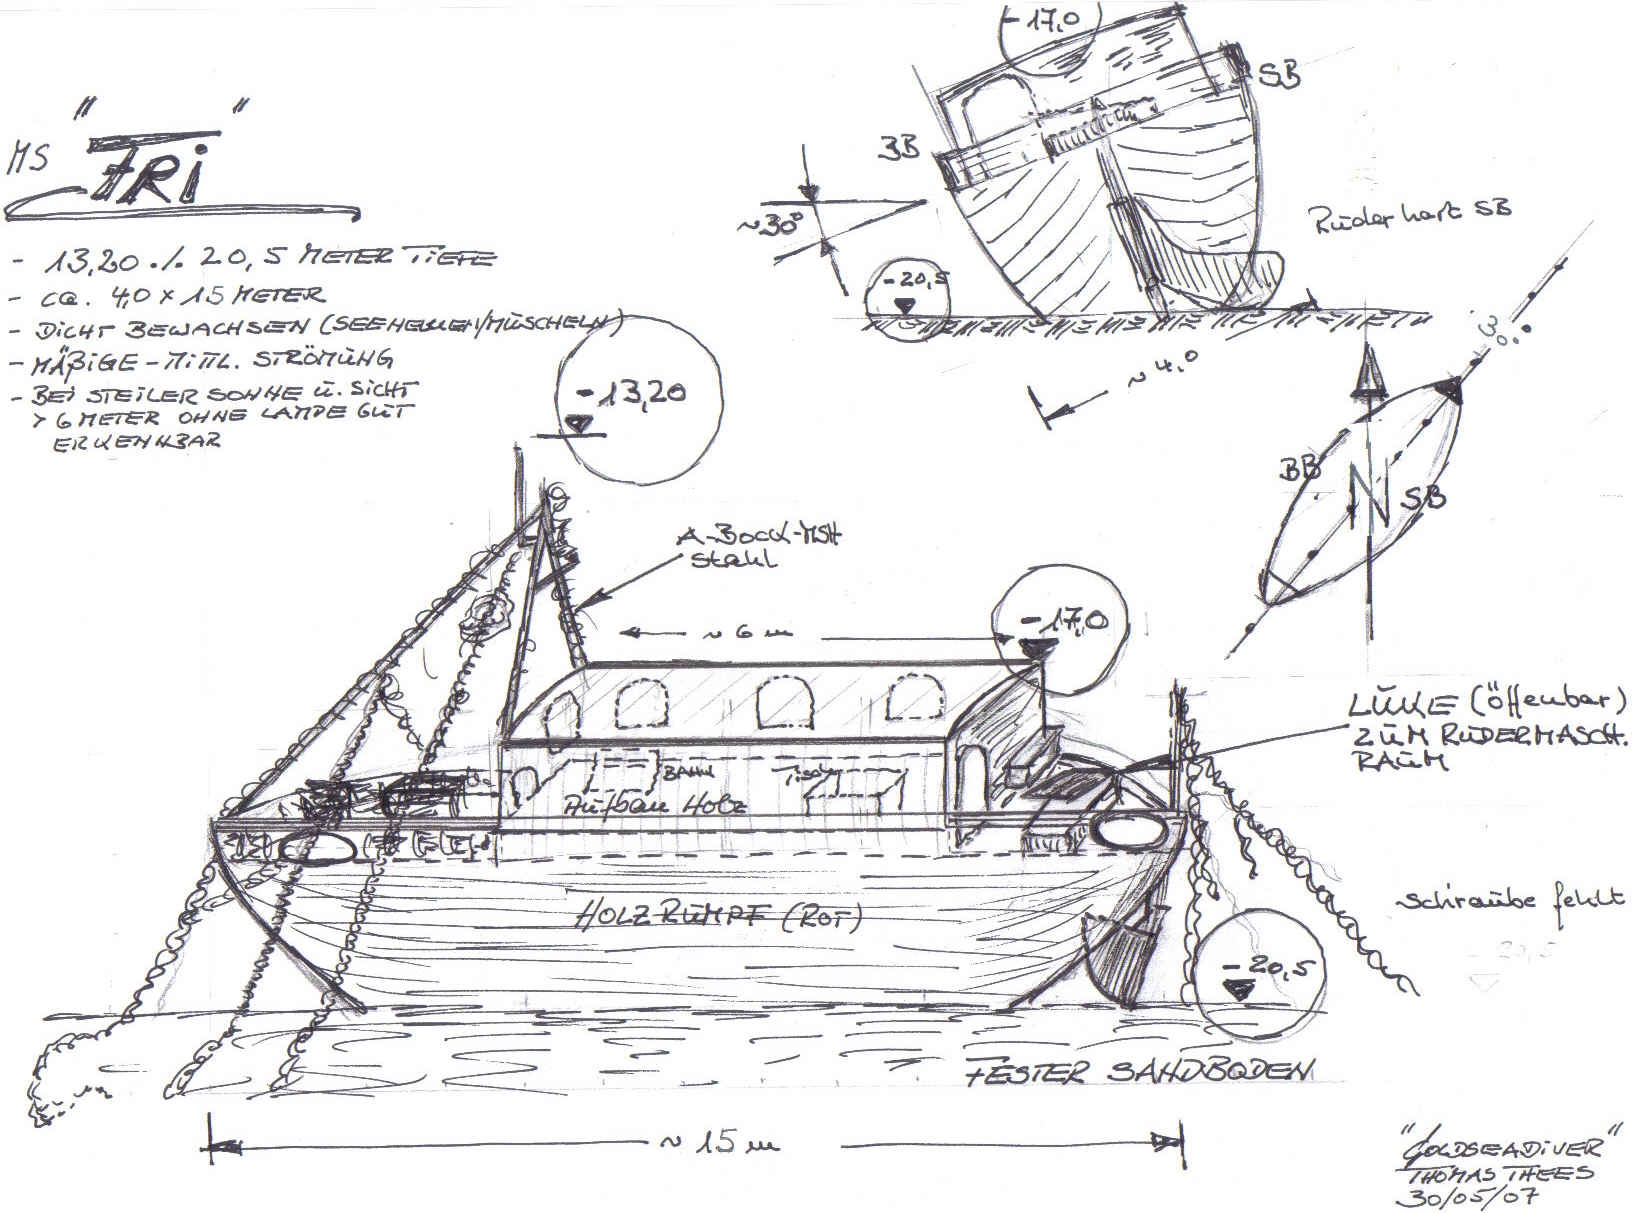 MS "FRi"
- 13,20 ./. 20,5 METER TIEFE
- ca. 4,0 x 15 METER
- DICHT BEWACHSEN (SEENELKEN/MUSCHELN)
- MÄßIGE - MITTL. STRÖMUNG
- BEI STEILER SONNE U. SICHT
> 6 METER OHNE LAMPE GUT
ERKENNBAR
-17,0
SB
BB
~30°
-20,5
Ruder hart SB
~ 4,0
30°
BB
N
SB
-13,20
A-Bock-MSH
Stahl
~ 6 m
-17,0
LUKE (Öffenbar)
ZUM RUDERMASCH.
RAUM
Tisch
Aufbau Holz
HOLZRUMPF (ROT)
Schraube fehlt
-20,5
-20,5
FESTER SANDBODEN
~ 15 m
"GOLDSEADIVER"
THOMAS THEES
30/05/07